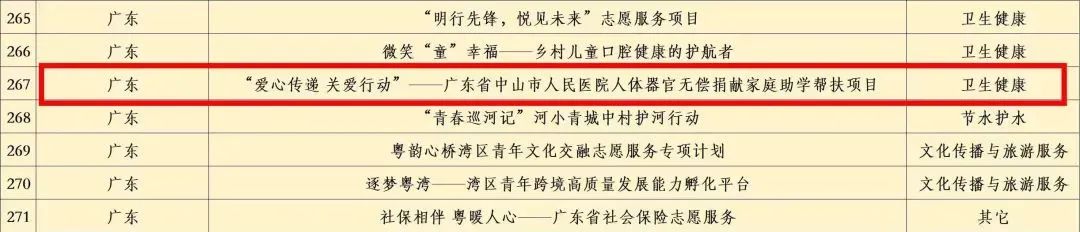 265 广东 “明行先锋，悦见未来”志愿服务项目 卫生健康
266 广东 微笑“童”幸福——乡村儿童口腔健康的护航者 卫生健康
267 广东 “爱心传递 关爱行动”——广东省中山市人民医院人体器官无偿捐献家庭助学帮扶项目 卫生健康
268 广东 “青春巡河记”河小青城中村护河行动 节水护水
269 广东 粤韵心桥湾区青年文化交融志愿服务专项计划 文化传播与旅游服务
270 广东 逐梦粤湾——湾区青年跨境高质量发展能力孵化平台 文化传播与旅游服务
271 广东 社保相伴 粤暖人心——广东省社会保险志愿服务 其它